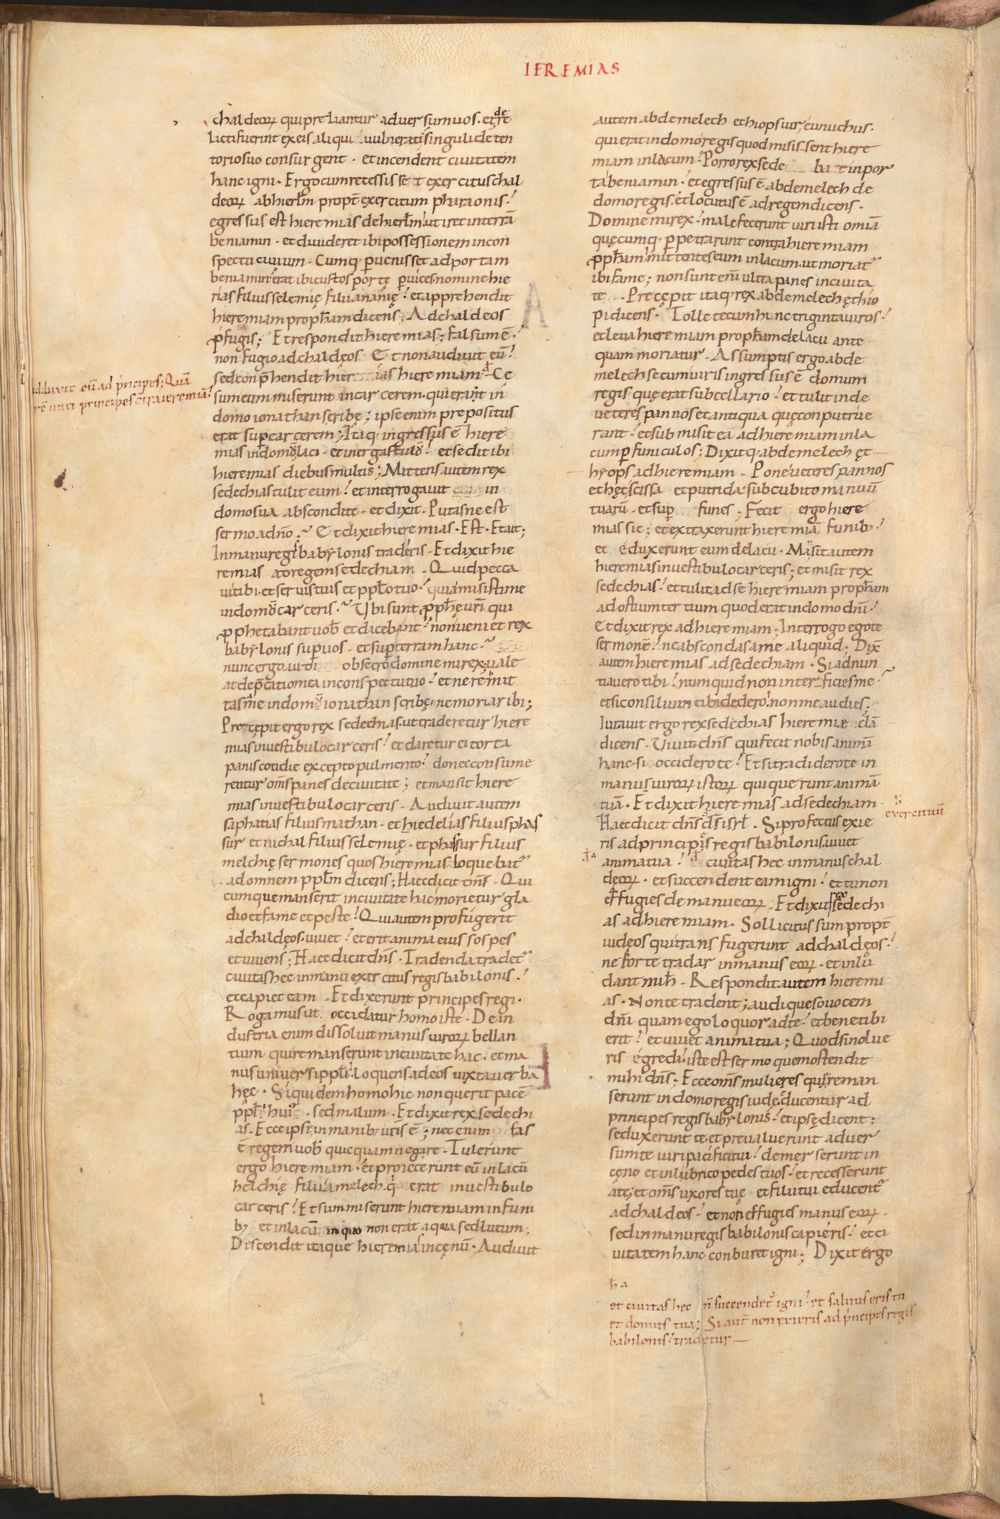 IEREMIAS
chaldeorꝝ qui preliantur adversum vos. et de
licti fuerint ex eis aliqui vulnerati singuli de ten
torio suo consurgent. et incendent civitatem
hanc igni. Ergo cum recessisset exercitus chal
deorꝝ ab hierlm̄ propt̄ exercitum pharaonis.
egressus est hieremias de hierlm̄ ut iret in terrā
beniamin. et divideret ibi possessionem in con
spectu civium. Cumq; p̄venisset ad portam
beniamin erat ibi custos portę p̄ vices nomine hie
rias filius selemię filii ananię. et apprehendit
hieremiam proph̄am dicens; Ad chaldeos
ꝓfugis; Et respondit hieremias; falsum ē.
non fugio ad chaldeos. Et non audivit eū.
sed conp̄hendit hierias hieremiam
sum eum miserunt in carcerem. qui erat in
domo ionathan scribę; ipse enim prepositus
erat sup̄ carcerem; Itaq; ingressus ē hiere
mias in domū laci. et in ergastulō. et sedit ibi
hieremias diebus multis; Mittens autem rex
sedechias tulit eum. et interrogavit in
domo sua abscondite. et dixit. Putasne est
sermo a dn̄o. Et dixit hieremias. Est. Et ait;
In manu regis babylonis traderis. Et dixit hie
remias ad regem sedechiam. Quid pecca
vi tibi. et servis tuis et pp̄lo tuo. quia misisti me
in domū carceris. Ubi sunt ꝓph̄ę vr̄i qui
ꝓphetabant vob̄ et dicebant. non veniet rex
babylonis sup̄ vos. et sup̄ terram hanc.
nunc ergo audi obsecro domine mi rex. vale
at dep̄catio mea in conspectu tuo. et ne remit
tas me in domū ionathan scribę. ne moriar ibi;
Precepit ergo rex sedechias. ut traderetur hiere
mias in vestibulo carceris. et daretur ei torta
panis cotidie excepto pulmento. donec consume
rentur om̄s panes de civitate; et mansit hiere
mias in vestibulo carceris. Audivit autem
saphatias filius mathan. et hiedelias filius phas
sur. et iuchal filius selemię. et phassur filius
melchię sermones quos hieremias loquebat̄
ad omnem pp̄lm dicens; Haec dicit dn̄s. Qui
cumque manserit in civitate hac morietur gla
dio et fame et peste. Qui autem profugerit
ad chaldęos. vivet. et erit anima eius sospes
et vivens; Haec dicit dn̄s. Tradenda tradet̄
civitas hec in manu exercitus regis babilonis.
et capiet eam. Et dixerunt principes regi.
Rogamus ut occidatur homo iste. De in
dustria enim dissolvit manus virorꝝ bellan
tium qui remanserunt in civitate hac. et ma
nus universi ppl̄i. loquens ad eos iuxta verba
hęc. Siquidem homo hic non querit pacē
ppl̄i huic. sed malum. Et dixit rex sedechi
as. Ecce ipse in manib; vr̄is ē; nec enim fas
ē regem vob̄ quicquam negare. Tulerunt
ergo hieremiam. et proiecerunt eū in lacū
helchię filii amelech. q̄ erat in vestibulo
carceris. Et summiserunt hieremiam in funi
b; et in lacū in quo non erat aqua sed lutum;
Discendit itaque hieremia in cęnū. Audivit
adduxit eū ad principes; Quā
principes ꝯtra ieremiā
autem abdemelech ethiops vir eunuchus.
qui erat in domo regis quod misissent hiere
miam in lacum. Porro rex sede ba t in por
ta beniamin. et egressus ē abdemelech de
domo regis. et locutus ē ad regem dicens.
Domine mi rex. male fecerunt viri isti omīa
quęcumq; p̄petrarunt contra hieremiam
ꝓph̄am mittentes eum in lacum. ut moriat̄
ibi fame; non sunt enī ultra panes in civita
te. Precepit itaq; rex abdemelech ęthio
pi dicens. Tolle tecum hinc triginta viros.
et leva hieremiam proph̄am de lacu ante
quam moriatur. Assumptis ergo abde
melech secum viris ingressus ē domum
regis quę erat sub cellario. et tulit inde
veteres pannos et antiqua quę conputrue
rant. et submisit ea ad hieremiam in la
cum p̄ funiculos; Dixitq; abdemelech ęt
hyops ad hieremiam. Pone veteres pannos
et hęc scissa et putrida. sub cubito manuū
tuarū. et sup̄ funes. Fecit ergo hiere
mias sic; et extraxerunt hieremiā funib;
et eduxerunt eum de lacu. Mansit autem
hieremias in vestibulo carceris; et misit rex
sedechias. et tulit ad se hieremiam proph̄am
ad ostium tertium quod erat in domo dn̄i.
Et dixit rex ad hieremiam. Interrogo ego te
sermonē. ne abscondas a me aliquid. Dix̄
autem hieremias ad sedechiam. Si adnun
tiavero tibi. numquid non interficies me.
et si consilium tibi dedero. non me audies.
Iuravit ergo rex sedechias hieremię clā
dicens. Vivit dn̄s qui fecit nobis animā
hanc. si occidero te. Et si tradidero te in
manus virorꝝ istorꝝ qui querunt animā
tuā. Et dixit hieremias ad sedechiam.
Haec dicit dn̄s ds̄ isrl̄. Si profectus exie
ris ad principes regis babilonis. vivet
anima tua. civitas hec in manus chal
deorꝝ. et succendent eam igni. et tu non
effugies de manu eorꝝ. Et dixit rex sedechi
as ad hieremiam. Sollicitus sum propt̄
iudęos qui transfugerunt ad chaldęos.
ne forte tradar in manus eorꝝ. et inlu
dant mih̄. Respondit autem hieremi
as. Non te tradent; audi queso vocem
dn̄i quam ego loquor ad te. et bene tibi
erit. et vivet anima tua; Quod si nolue
ris ęgredi. iste est sermo quem ostendit
mihi dn̄s; Ecce om̄s mulieres quę reman
serunt in domo regis iudę. ducentur ad
principes regis babylonis. et ipsę dicent:
seduxerunt te. et prevaluerunt adver
sum te viri pacifici tui. demerserunt in
cęno et in lubrico pedes tuos. et recesserunt
a te; et om̄s uxores tuę et filii tui educent̄
ad chaldeos. et non effugies manus eorꝝ.
sed in manu regis babilonis capieris. et ci
vitatem hanc conburet igni; Dixit ergo
exercituū
ha
et civitas hec n̄ succendet̄ igni. et salvus eris tu
et domus tua; Si aut̄ non exieris ad p̄ncipes regis
babilonis. tradetur